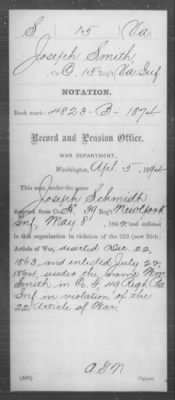 S 15 Va.
Joseph Smith,
Co. C, 15 Reg't Va. Inf.
NOTATION.
Book mark: 4823-B-1874
Record and Pension Office,
WAR DEPARTMENT,
Washington, Apr. 5, 189
This man, under the name
Joseph Schmidt
deserted from Co. 39 Reg't New York
Inf., May 8, 186 and enlisted
in this organization in violation of the 22d (now 50th)
Article of War, deserted Dec. 22,
1863, and enlisted July 22,
1864, under the name Wm
Smith in Co.
Inf. in violation of the
22 Article of War.
(403) Copyist.